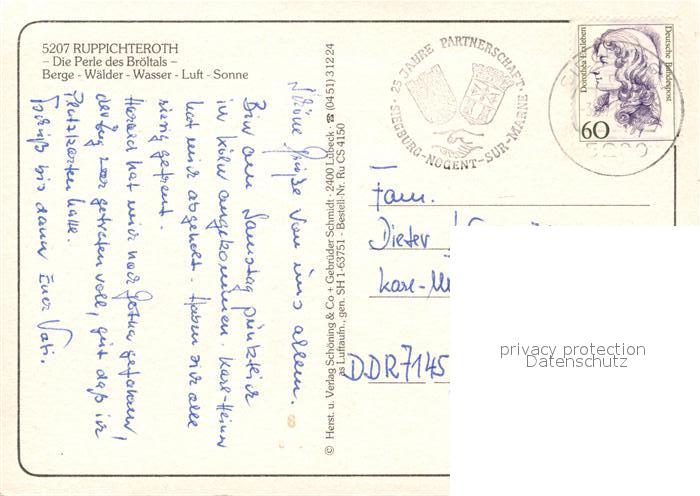 5207 RUPPICHTEROTH
– Die Perle des Bröltals –
Berge - Wälder - Wasser - Luft - Sonne
Schöne Grüße von uns allen.
Bin am Samstag pünktlich
in Köln angekommen. Karl-Heinz
hat mich abgeholt. Haben sich alle
riesig gefreut.
Harald hat mich nach Gotha gefahren,
der Zug war getreten voll, gut daß ich
Platzkarten hatte.
Tschüß bis dann Euer Vati.
© Herst. u. Verlag Schöning & Co + Gebrüder Schmidt · 2400 Lübeck · ☎ (04 51) 3 12 24
as Luftaufn., gen. SH 1-63751 - Bestell-Nr. Ru CS 4150
25 JAHRE PARTNERSCHAFT · SIEGBURG-NOGENT-SUR-MARNE
Dorothea Erxleben
Deutsche Bundespost
60
Fam.
Dieter
Karl-
DDR 7145
privacy protection
Datenschutz